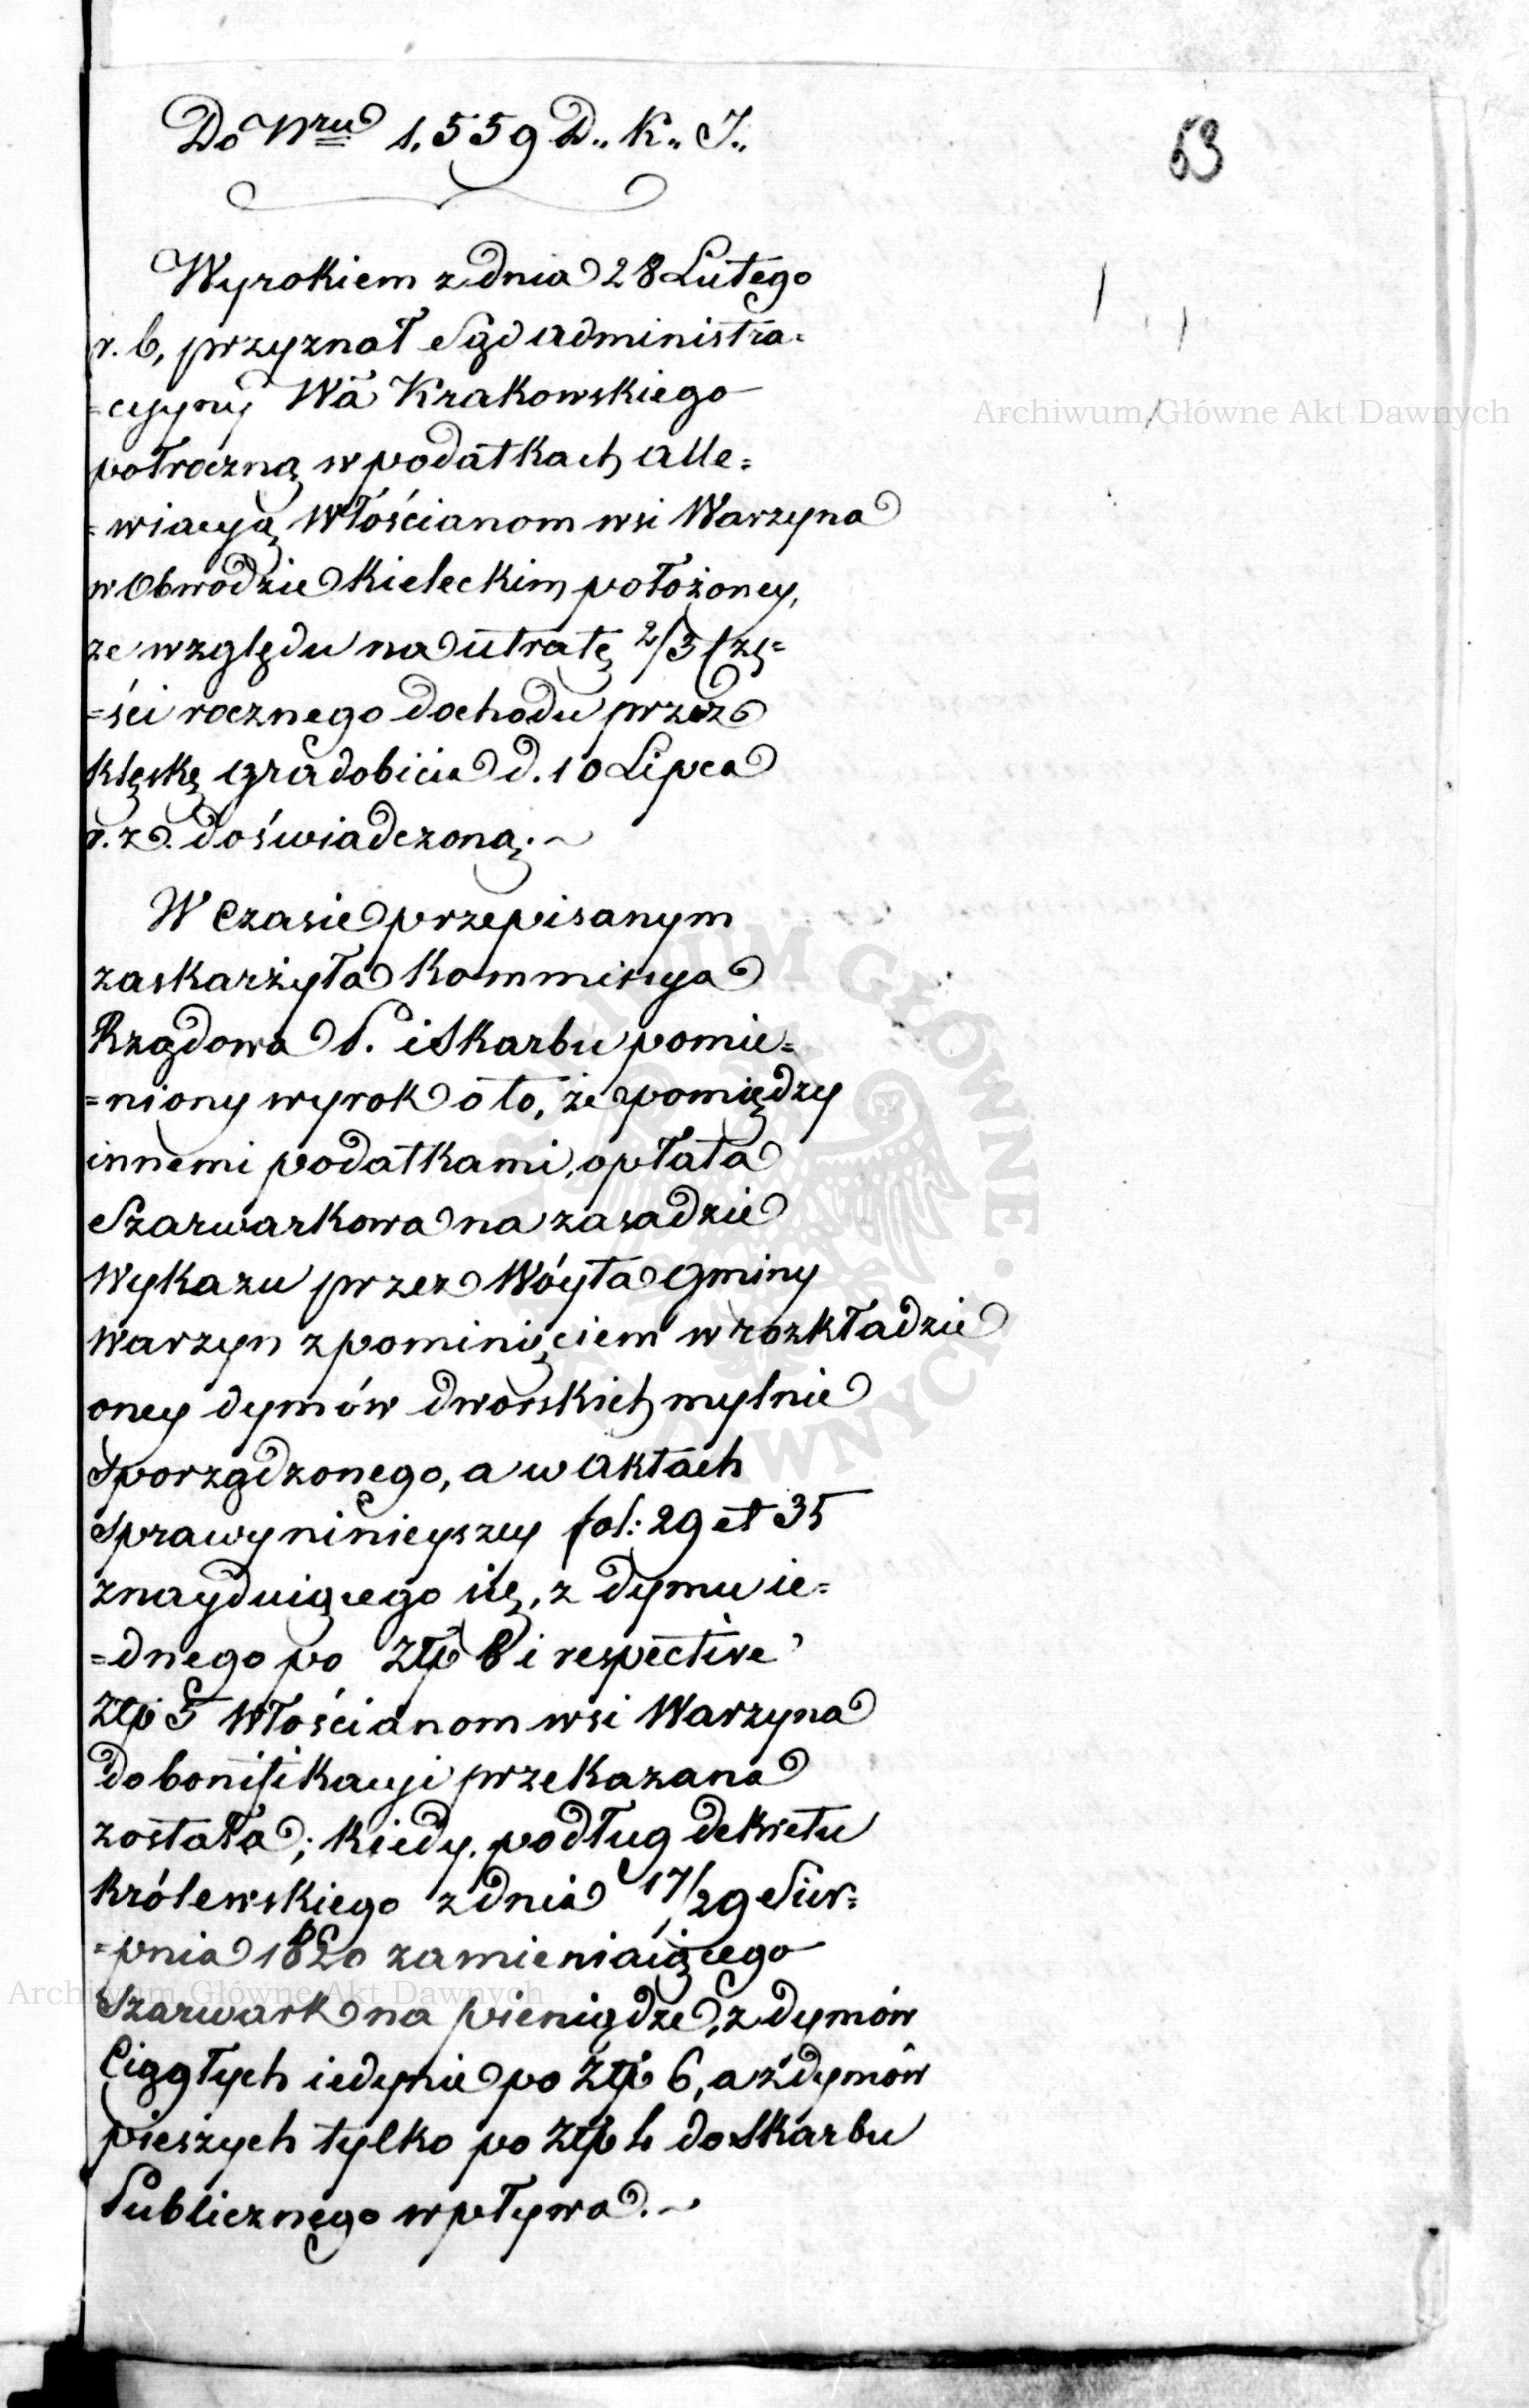 Do Nru 1.559 D.. K.. J..
63
Wyrokiem z dnia 28 Lutego
r. b, przyznał Sąd administra=
=cyjny Wa Krakowskiego
połroczną w podatkach alle=
=wiacyą Włościanom wsi Warzyna
w Obwodzie Kieleckim położoney,
ze względu na utratę 2/3 Czę=
=ści rocznego dochodu przez
klęskę gradobicia d. 10 Lipca
r. z. doświadczoną.
W Czasie przepisanym
zaskarżyła Kommissya
Rządowa P. i Skarbu pomie=
=niony wyrok o to, że pomiędzy
innemi podatkami, opłata
Szarwarkowa na zasadzie
Wykazu przez Wóyta Gminy
Warzyn z pominięciem w rozkładzie
oney dymów dworskich mylnie
sporządzonego, a w aktach
sprawy ninieyszey fol: 29 et 35
znayduiącego się, z dymu ie=
=dnego po Złp 8 i respective
Złp 5 Włościanom wsi Warzyna
do bonifikacyi przekazana
została; kiedy, podług dekretu
Królewskiego z dnia 17/29 Sier=
=pnia 1820 zamieniaiącego
Szarwark na pieniądze, z dymów
Ciągłych iedynie po Złp 6, a z dymów
pieszych tylko po Złp 4 do Skarbu
Publicznego wpływa.
Archiwum Główne Akt Dawnych
Archiwum Główne Akt Dawnych
ARCHIWUM GŁÓWNE AKT DAWNYCH